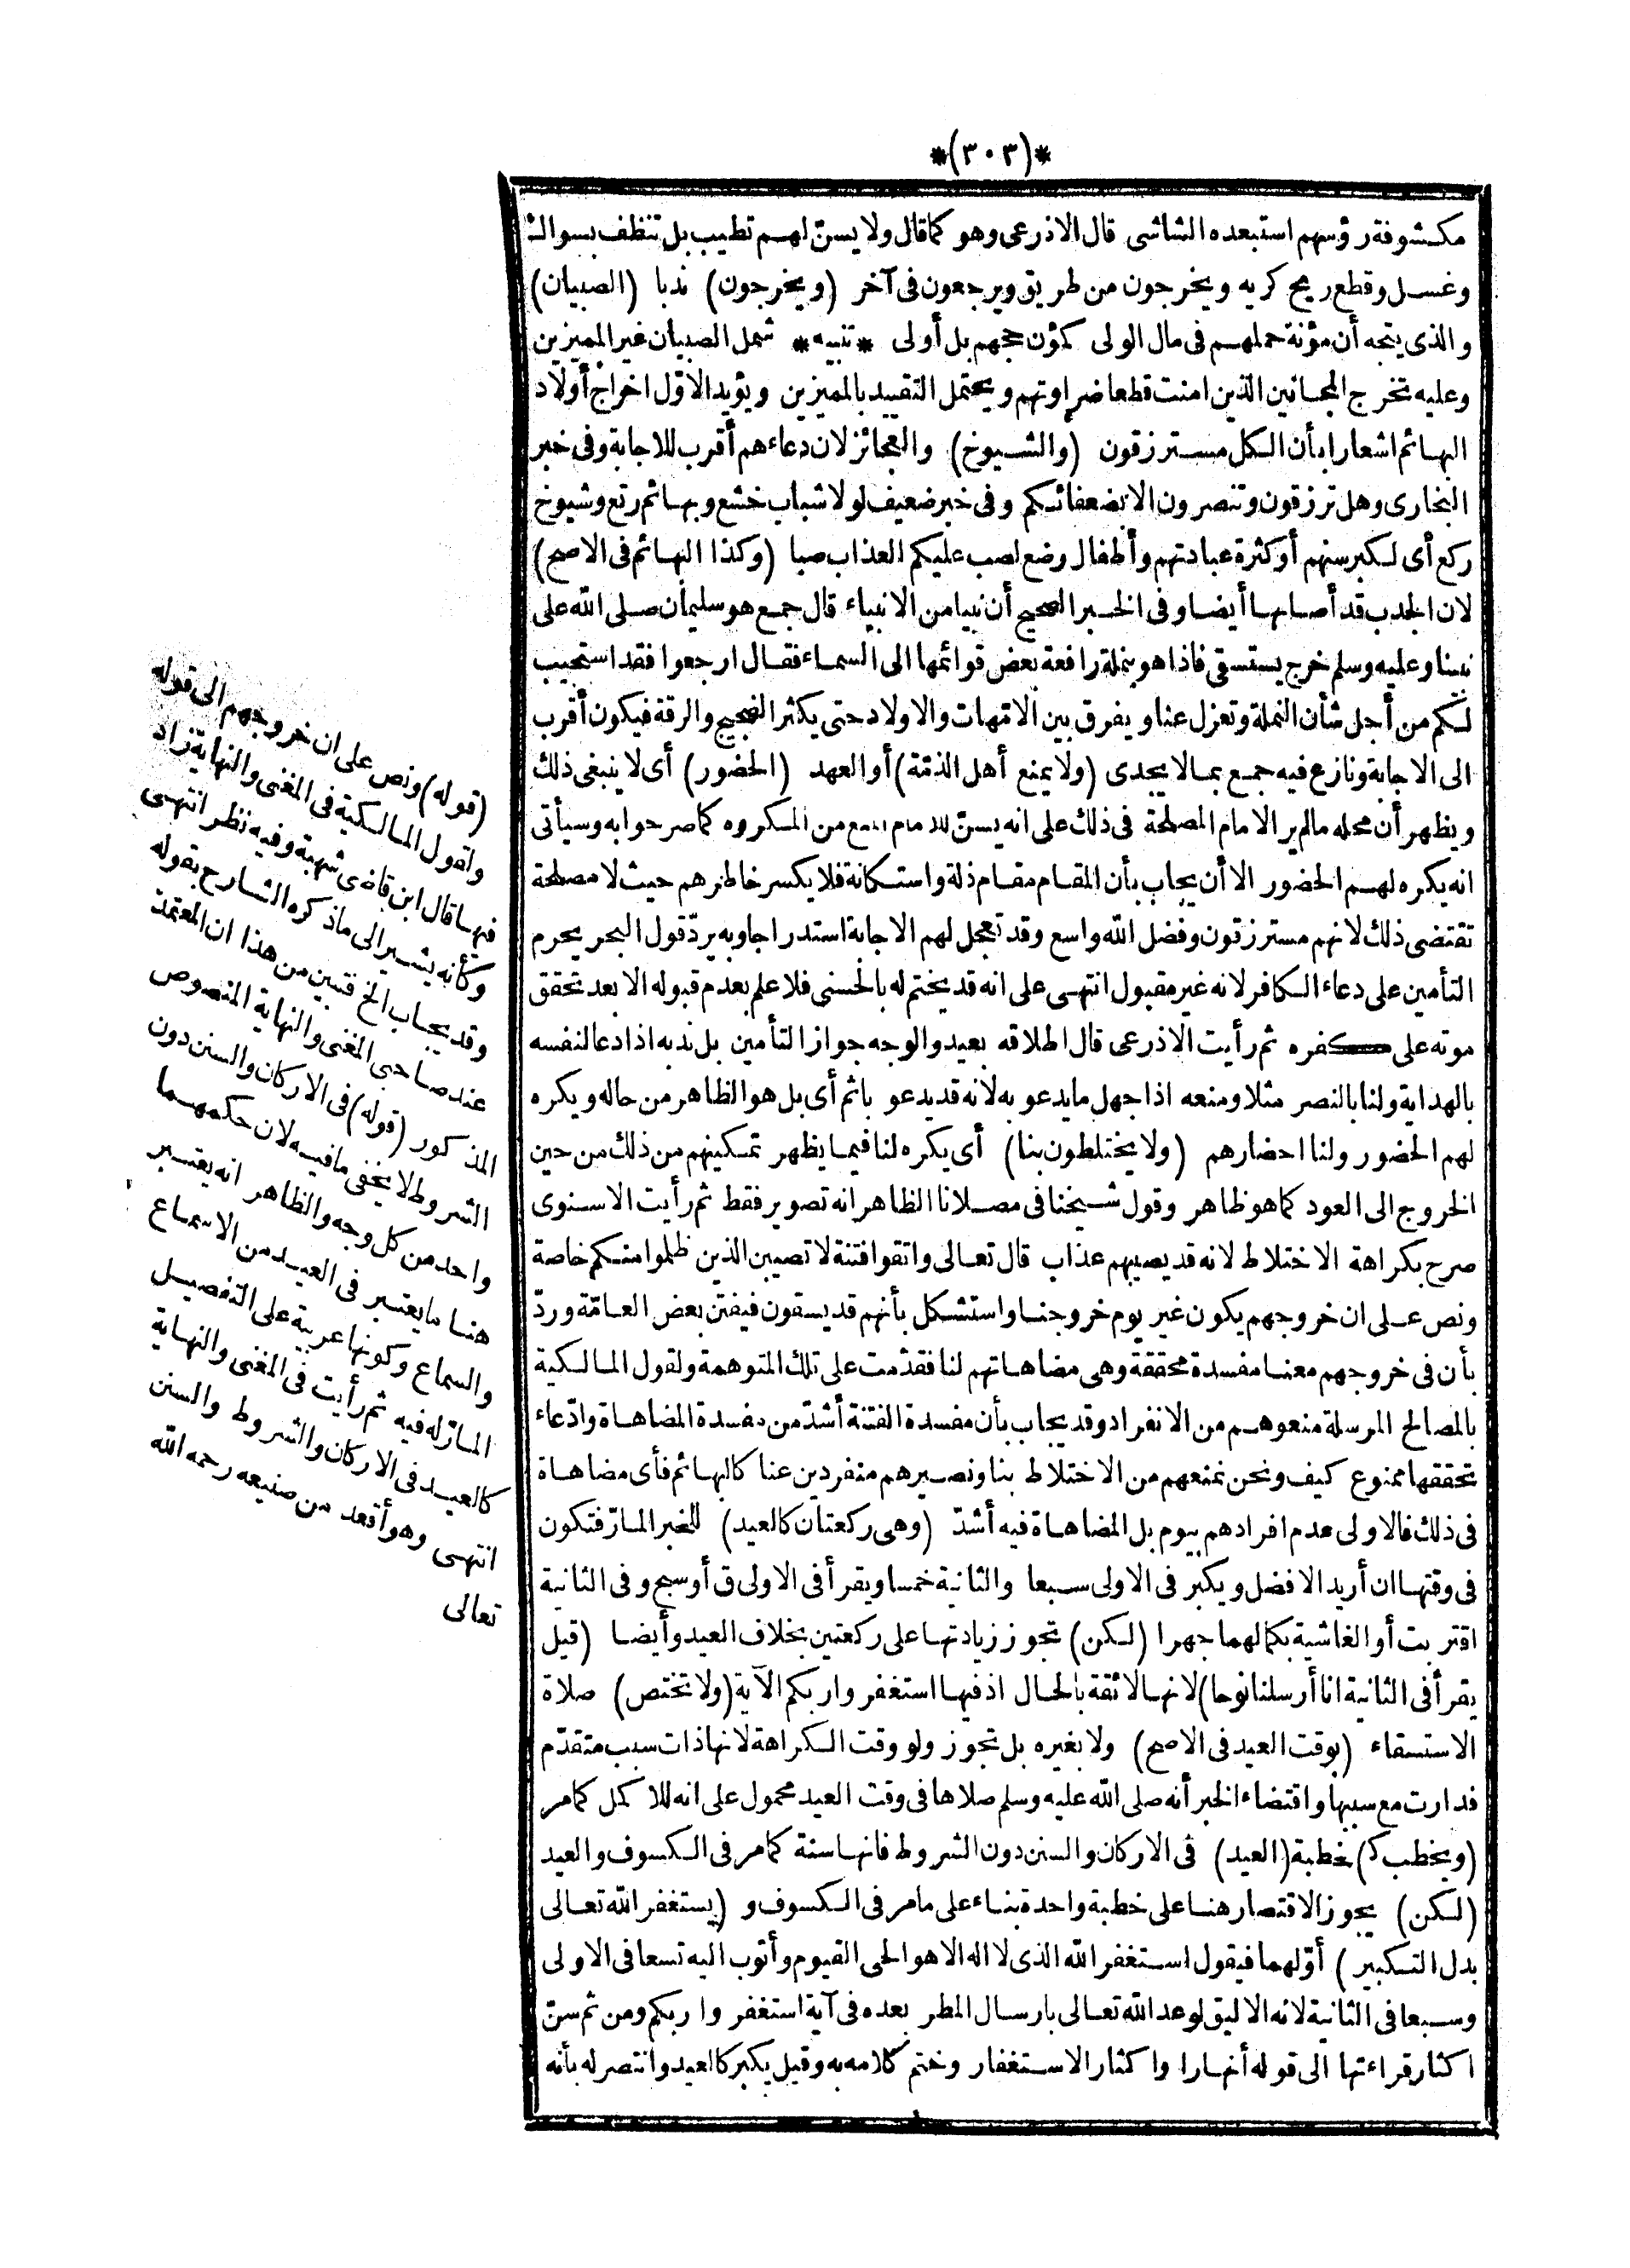 *(٣٠٣)*
مكشوفة رؤسهم استبعده الشاشى قال الاذرعى وهو كما قال ولا يسنّ لهم تطيب بل تنظف بسواك
وغسل وقطع ريح كريه ويخرجون من طريق ويرجعون فى آخر (ويخرجون) ندبا (الصبيان)
والذى يتجه أن مؤنة حملهم فى مال الولى كمؤن حجهم بل أولى *تنبيه* شمل الصبيان غير المميزين
وعليه تخرج المجانين الذين امنت قطعا ضراوتهم ويحتمل التقييد بالمميزين ويؤيد الاوّل اخراج أولاد
البهائم اشعارا بأن الكل مسترزقون (والشيوخ) والعجائز لان دعاءهم أقرب للاجابة وفى خبر
البخارى وهل ترزقون وتنصرون الا بضعفائكم وفى خبر ضعيف لولا شباب خشع وبهائم رتع وشيوخ
ركع أى لكبر سنهم أو كثرة عبادتهم وأطفال رضع لصب عليكم العذاب صبا (وكذا البهائم فى الاصح)
لان الجدب قد أصابها أيضا وفى الخبر الصحيح أن نبيا من الانبياء قال جمع هو سليمان صلى الله على
نبينا وعليه وسلم خرج يستسقى فاذا هو بنملة رافعة بعض قوائمها الى السماء فقال ارجعوا فقد استجيب
لكم من أجل شأن النملة وتعزل عنا ويفرق بين الامّهات والاولاد حتى يكثر الضجيج والرقة فيكون أقرب
الى الاجابة ونازع فيه جمع بما لا يجدى (ولا يمنع أهل الذمّة) أو العهد (الحضور) أى لا ينبغى ذلك
ويظهر أن محله ما لم ير الامام المصلحة فى ذلك على انه يسنّ للامام المنع من المكروه كما صرحوا به وسيأتى
انه يكره لهم الحضور الا أن يجاب بأن المقام مقام ذلة واستكانة فلا يكسر خاطرهم حيث لا مصلحة
تقتضى ذلك لانهم مسترزقون وفضل الله واسع وقد تعجل لهم الاجابة استدراجا وبه يردّ قول البحر يحرم
التأمين على دعاء الكافر لانه غير مقبول انتهى على انه قد يختم له بالحسنى فلا علم بعدم قبوله الا بعد تحقق
موته على كفره ثم رأيت الاذرعى قال اطلاقه بعيد والوجه جواز التأمين بل ندبه اذا دعا لنفسه
بالهداية ولنا بالنصر مثلا ومنعه اذا جهل ما يدعو به لانه قد يدعو باثم أى بل هو الظاهر من حاله ويكره
لهم الحضور ولنا احضارهم (ولا يختلطون بنا) أى يكره لنا فيما يظهر تمكينهم من ذلك من حين
الخروج الى العود كما هو ظاهر وقول شيخنا فى مصلانا الظاهر انه تصوير فقط ثم رأيت الاسنوى
صرح بكراهة الاختلاط لانه قد يصيبهم عذاب قال تعالى واتقوا فتنة لا تصيبن الذين ظلموا منكم خاصة
ونص على ان خروجهم يكون غير يوم خروجنا واستشكل بأنهم قد يسقون فيفتن بعض العامّة وردّ
بأن فى خروجهم معنا مفسدة محققة وهى مضاهاتهم لنا فقدّمت على تلك المتوهمة ولقول المالكية
بالمصالح المرسلة منعوهم من الانفراد وقد يجاب بأن مفسدة الفتنة أشدّ من مفسدة المضاهاة وادّعاء
تحققها ممنوع كيف ونحن نمنعهم من الاختلاط بنا ونصيرهم منفردين عنا كالبهائم فأى مضاهاة
فى ذلك فالاولى عدم افرادهم بيوم بل المضاهاة فيه أشدّ (وهى ركعتان كالعيد) للخبر المارّ فتكون
فى وقتها ان أريد الافضل ويكبر فى الاولى سبعا والثانية خمسا ويقرأ فى الاولى ق أو سبح وفى الثانية
اقتربت أو الغاشية بكمالهما جهرا (لكن) تجوز زيادتها على ركعتين بخلاف العيد وأيضا (قيل
يقرأ فى الثانية انا أرسلنا نوحا) لانها لائقة بالحال اذ فيها استغفروا ربكم الآية (ولا تختص) صلاة
الاستسقاء (بوقت العيد فى الاصح) ولا بغيره بل تجوز ولو وقت الكراهة لانها ذات سبب متقدّم
فدارت مع سببها واقتضاء الخبر أنه صلى الله عليه وسلم صلاها فى وقت العيد محمول على انه للاكمل كما مر
(ويخطب ك) خطبة (العيد) فى الاركان والسنن دون الشروط فانها سنة كما مر فى الكسوف والعيد
(لكن) يجوز الاقتصار هنا على خطبة واحدة بناء على ما مر فى الكسوف و (يستغفر الله تعالى
بدل التكبير) أوّلهما فيقول استغفر الله الذى لا اله الا هو الحى القيوم وأتوب اليه تسعا فى الاولى
وسبعا فى الثانية لانه الاليق لوعد الله تعالى بارسال المطر بعده فى آية استغفروا ربكم ومن ثم سنّ
اكثار قراءتها الى قوله أنهارا واكثار الاستغفار وختم كلامه به وقيل يكبر كالعيد وانتصر له بأنه
(قوله) ونص على ان خروجهم الى قوله
ولقول المالكية فى المغنى والنهاية زاد
فيها قال ابن قاضى شهبة وفيه نظر انتهى
وكأنه يشير الى ما ذكره الشارح بقوله
وقد يجاب الخ فتبين من هذا ان المعتمد
عند صاحبى المغنى والنهاية المنصوص
المذكور (قوله) فى الاركان والسنن دون
الشروط لا يخفى ما فيه لان حكمهما
واحد من كل وجه والظاهر انه يعتبر
هنا ما يعتبر فى العيد من الاسماع
والسماع وكونها عربية على التفصيل
المارّ له فيه ثم رأيت فى المغنى والنهاية
كالعيد فى الاركان والشروط والسنن
انتهى وهو أقعد من صنيعه رحمه الله
تعالى